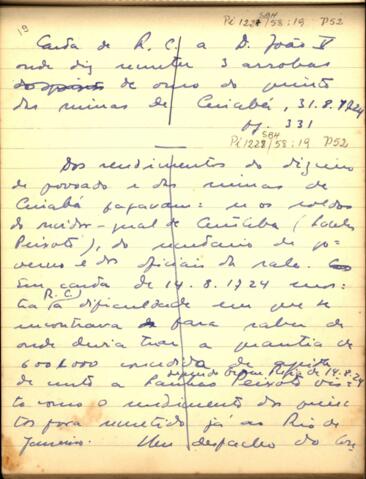 19
SBH
Pi 1228/58:19 P52
Carta de R. C. a D. João V
onde diz remeter 3 arrobas
de ouro do quinto
das minas de Cuiabá, 31.8.1724
pg. 331
SBH
Pi 1228/58:19 P52
Dos rendimentos do dizimo
de povoado e das minas de
Cuiabá pagavam: se os soldos
do ouvidor-geral de
Peixoto), do secretario de go-
verno e dos oficiais da sala.
Em carta de 14.8.1724 mos-
tra (R.C.) a dificuldade em que se
encontrava para saber de
onde devia tirar a quantia de
600$000 concedida de ajuda
segundo Ordem Regia de 14.8.24
de custo a Peixoto vis-
to como o rendimento dos quin-
tos fora remetido já ao Rio de
Janeiro. Um despacho do Con-